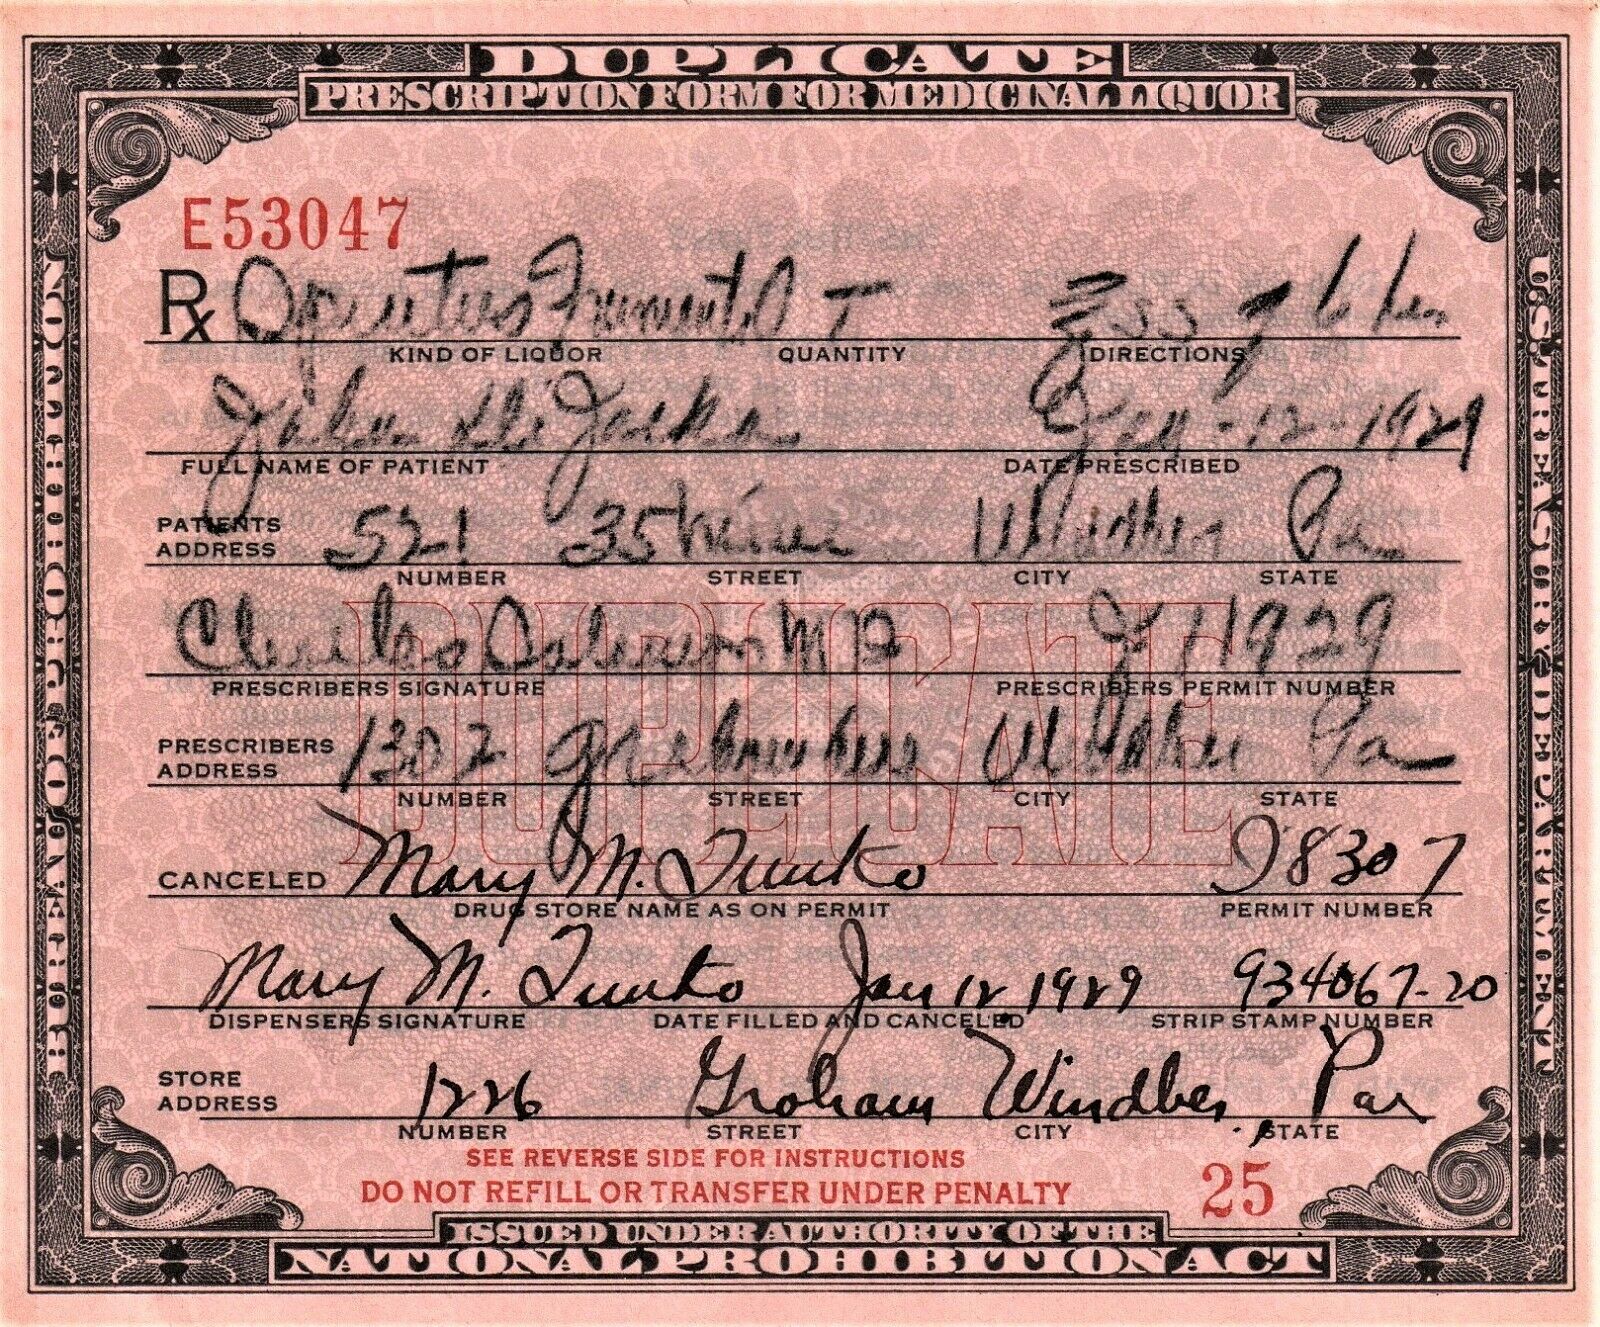 DUPLICATE
PRESCRIPTION FORM FOR MEDICINAL LIQUOR
E53047
Rx Spiritus Frumenti
KIND OF LIQUOR QUANTITY DIRECTIONS
John Jan-12-1929
FULL NAME OF PATIENT DATE PRESCRIBED
PATIENTS ADDRESS 521 35 Windber Pa
NUMBER STREET CITY STATE
Charles M D 1929
PRESCRIBERS SIGNATURE PRESCRIBERS PERMIT NUMBER
DUPLICATE
PRESCRIBERS ADDRESS 1302 Windber Pa
NUMBER STREET CITY STATE
CANCELED Mary M. 8307
DRUG STORE NAME AS ON PERMIT PERMIT NUMBER
Mary M. Jan 12 1929 934067-20
DISPENSERS SIGNATURE DATE FILLED AND CANCELED STRIP STAMP NUMBER
STORE ADDRESS 1226 Graham Windber, Pa
NUMBER STREET CITY STATE
SEE REVERSE SIDE FOR INSTRUCTIONS
DO NOT REFILL OR TRANSFER UNDER PENALTY
25
ISSUED UNDER AUTHORITY OF THE
NATIONAL PROHIBITION ACT